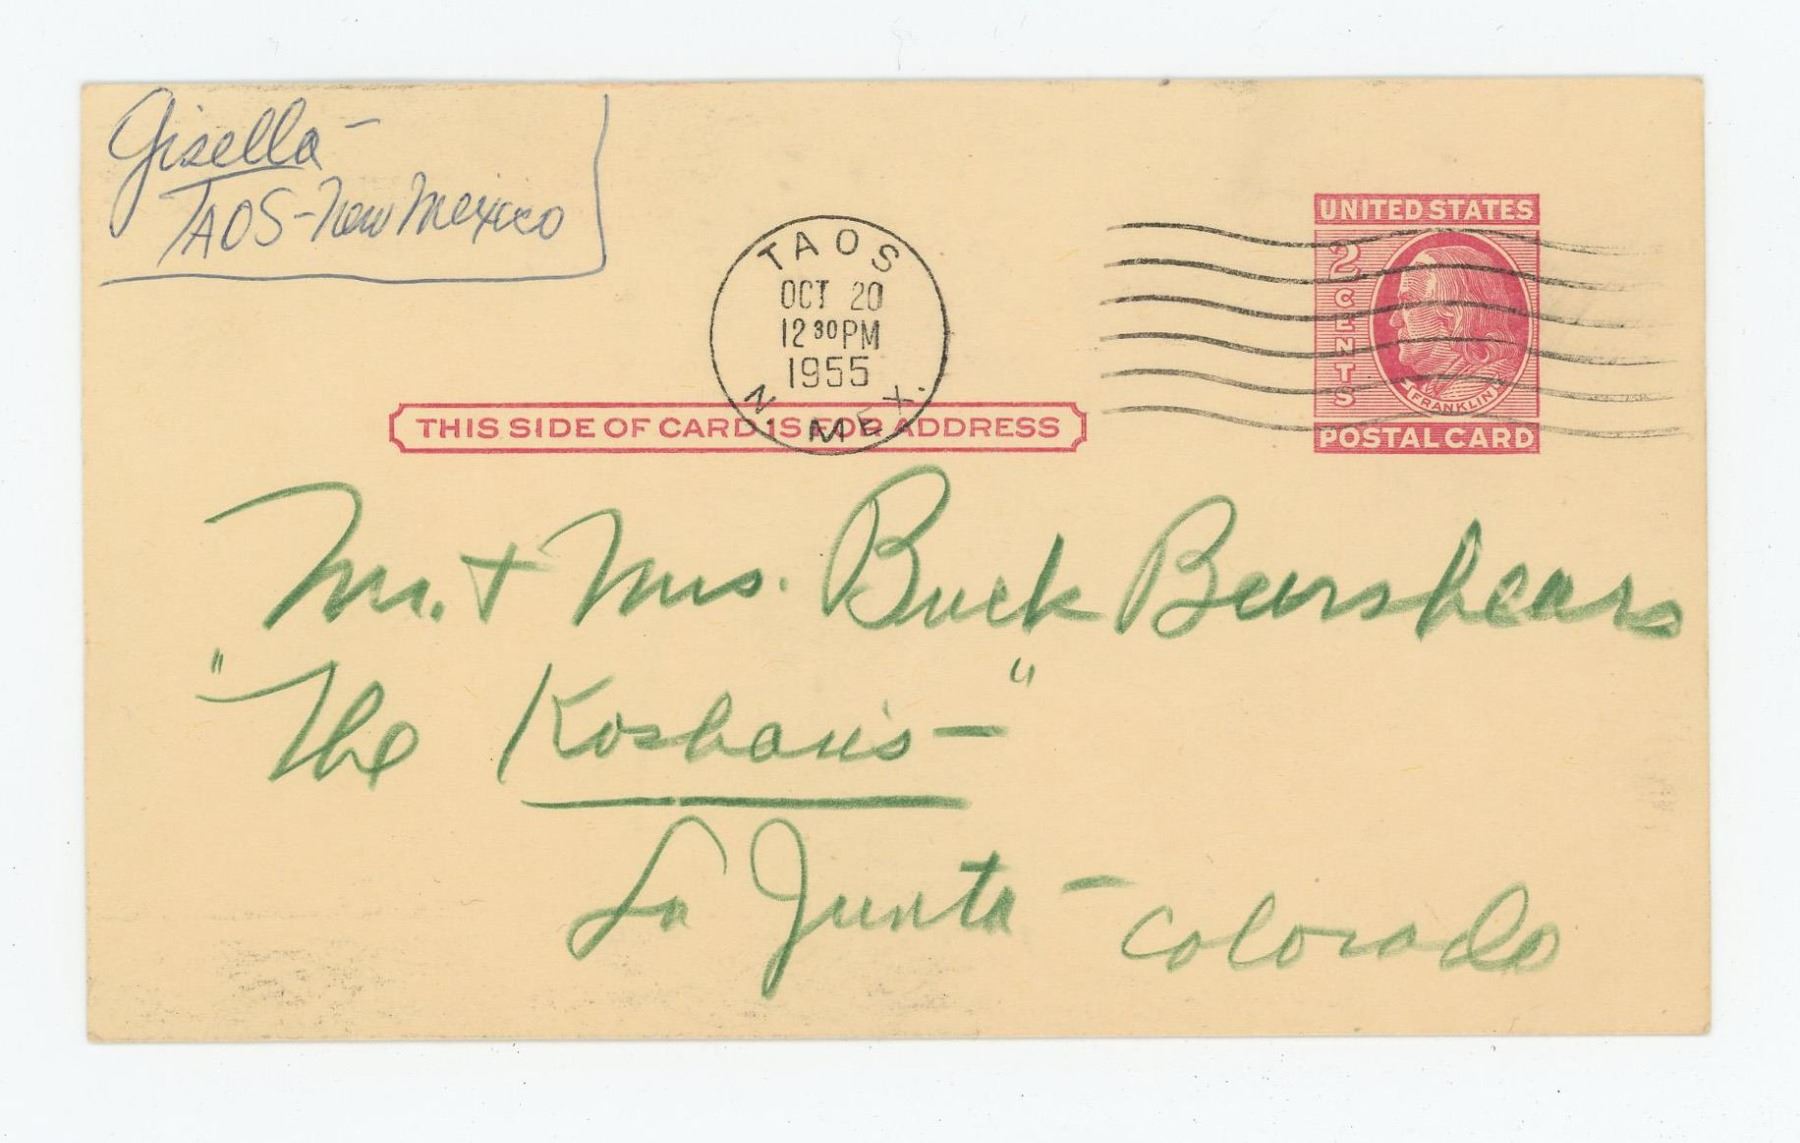 Gisella-
TAOS-New Mexico
TAOS
OCT 20
12 30 PM
1955
N. MEX.
UNITED STATES
2 CENTS
FRANKLIN
POSTAL CARD
THIS SIDE OF CARD IS FOR ADDRESS
Mr. + Mrs. Buck Burshears
"The Kosharis-"
La Junta - Colorado